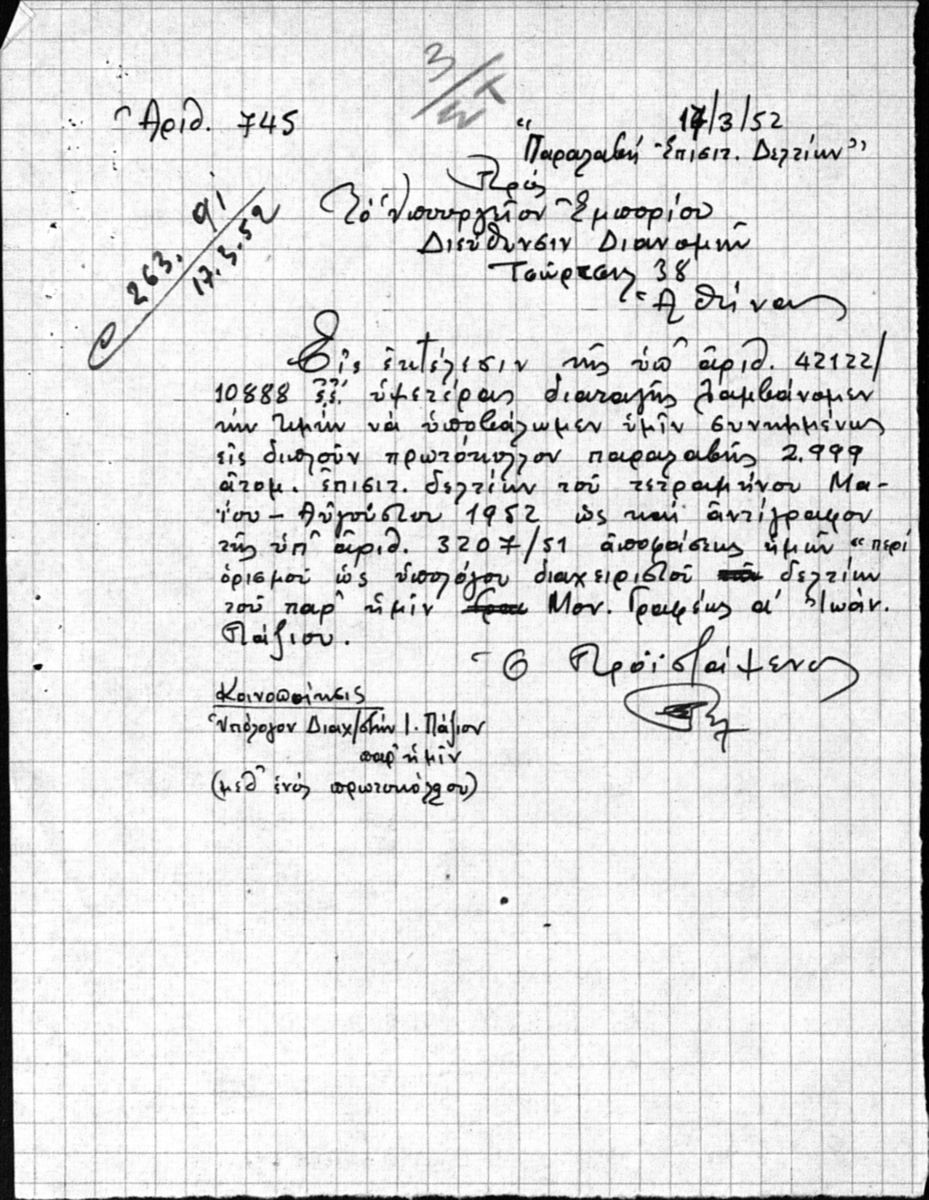 3/ωκ
Ἀριθ. 745
17/3/52
"Παραλαβή Ἐπισιτ. Δελτίων"
Πρός
Τό Ὑπουργεῖον Ἐμπορίου
Διεύθυνσιν Διανομῶν
Τσώρτσιλ 38
Ἀθήνας
263. 91
17.3.52
Εἰς ἐκτέλεσιν τῆς ὑπ' ἀριθ. 42122/
10888 ἐ.ἔ. ὑμετέρας διαταγῆς λαμβάνομεν
τήν τιμήν νά ὑποβάλωμεν ὑμῖν συνημμένως
εἰς διπλοῦν πρωτόκολλον παραλαβῆς 2.999
ἀτομ. ἐπισιτ. δελτίων τοῦ τετραμήνου Μα-
ΐου - Αὐγούστου 1952 ὡς καί ἀντίγραφον
τῆς ὑπ' ἀριθ. 3207/51 ἀποφάσεως ἡμῶν "περί
ὁρισμοῦ ὡς ὑπολόγου διαχειριστοῦ δελτίων
τοῦ παρ' ἡμῖν Μον. Γραφέως α' Ἰωάν.
Πάζιου.
Ὁ Προϊστάμενος
Κοινοποίησις
Ὑπόλογον Διαχ/στήν Ι. Πάζιον
παρ' ἡμῖν
(μεθ' ἑνός πρωτοκόλλου)